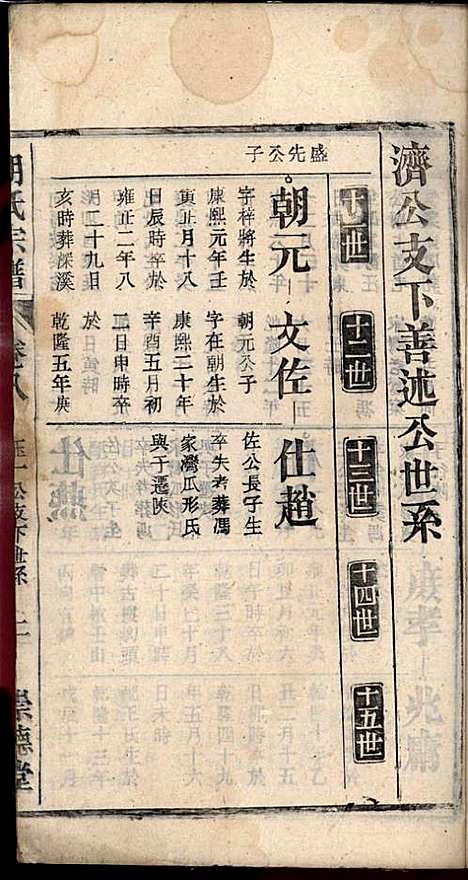 濟公支下善述公世系
十一世
十二世
十三世
十四世
十五世
盛先公子
朝元
文佐
仕趙
字梓將生於
康熙元年壬
寅正月十八
日辰時卒於
雍正二年八
月二十九日
亥時葬深溪
朝元公子
字在朝生於
康熙二十年
辛酉五月初
二日申時卒
於
乾隆五年庚
佐公長子生
卒失考葬馮
家灣瓜形氏
與于遷陝
胡氏宗譜
卷八
公支下世系
崇德堂